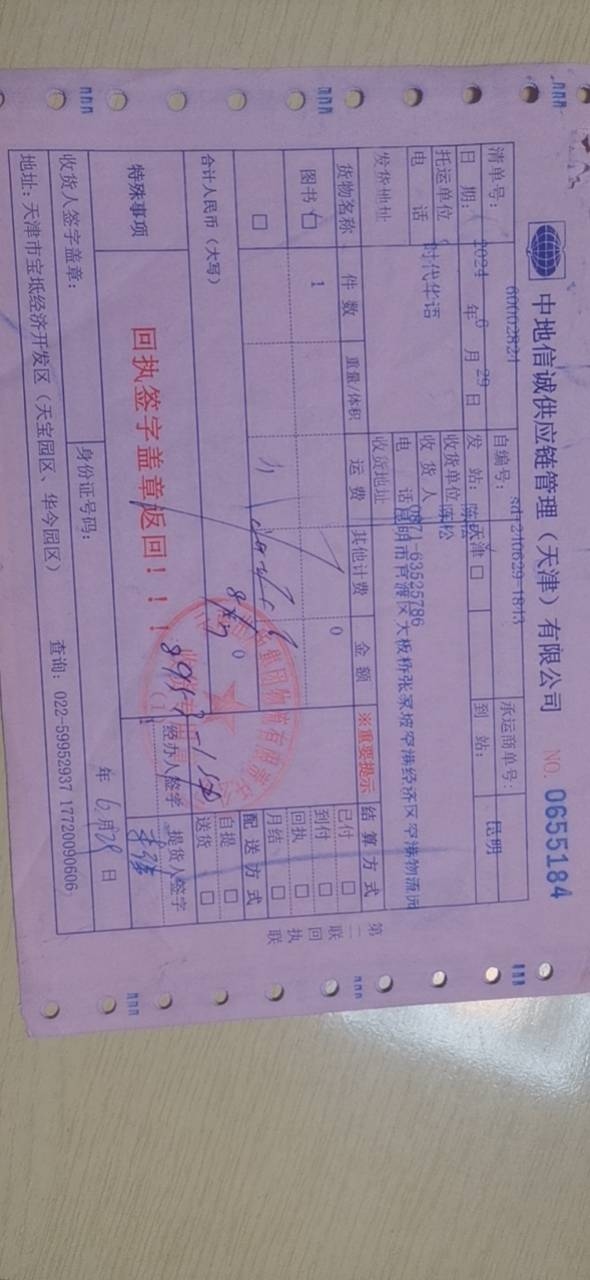 中地信诚供应链管理（天津）有限公司 NO. 0655184
清单号： 60002821 自编号： sdt-240629-1843 承运商单号：
日 期： 2024 年 6 月 29 日 发 站： 天津 到 站： 昆明
托运单位 时代华语 收货单位
电 话 收 货 人
电 话 0871-63525786
发货地址 收货地址 昆明市官渡区大板桥张家坡空港经济区空港物流园
货物名称 件 数 重量/体积 运 费 其他计费 金 额 ※重要提示 结 算 方 式
图书 1 0
已付 □
到付 □
回执 □
月结 □
配 送 方 式
自提 □
送货 □
合计人民币（大写） 0
特殊事项 回执签字盖章返回！！！
经办人签字 提货人签字
收货人签字盖章： 身份证号码： 年 6 月 29 日
地址：天津市宝坻经济开发区（天宝园区、华今园区） 查询：022-59952937 17720090606
第二联 回执联